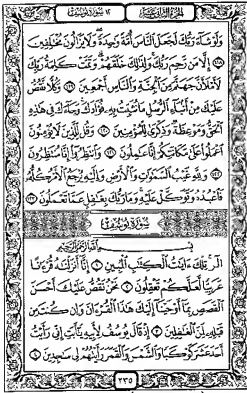 الجزء الثاني عشر سورة يوسف ١٢
وَلَوْ شَآءَ رَبُّكَ لَجَعَلَ ٱلنَّاسَ أُمَّةً وَٰحِدَةً وَلَا يَزَالُونَ مُخْتَلِفِينَ
١١٨ إِلَّا مَن رَّحِمَ رَبُّكَ وَلِذَٰلِكَ خَلَقَهُمْ وَتَمَّتْ كَلِمَةُ رَبِّكَ
لَأَمْلَأَنَّ جَهَنَّمَ مِنَ ٱلْجِنَّةِ وَٱلنَّاسِ أَجْمَعِينَ ١١٩ وَكُلًّا نَّقُصُّ
عَلَيْكَ مِنْ أَنۢبَآءِ ٱلرُّسُلِ مَا نُثَبِّتُ بِهِۦ فُؤَادَكَ وَجَآءَكَ فِى هَٰذِهِ
ٱلْحَقُّ وَمَوْعِظَةٌ وَذِكْرَىٰ لِلْمُؤْمِنِينَ ١٢٠ وَقُل لِّلَّذِينَ لَا يُؤْمِنُونَ
ٱعْمَلُوا۟ عَلَىٰ مَكَانَتِكُمْ إِنَّا عَٰمِلُونَ ١٢١ وَٱنتَظِرُوٓا۟ إِنَّا مُنتَظِرُونَ
١٢٢ وَلِلَّهِ غَيْبُ ٱلسَّمَٰوَٰتِ وَٱلْأَرْضِ وَإِلَيْهِ يُرْجَعُ ٱلْأَمْرُ كُلُّهُۥ
فَٱعْبُدْهُ وَتَوَكَّلْ عَلَيْهِ وَمَا رَبُّكَ بِغَٰفِلٍ عَمَّا تَعْمَلُونَ ١٢٣
سُورَةُ يُوسُفَ
بِسْمِ ٱللَّهِ ٱلرَّحْمَٰنِ ٱلرَّحِيمِ
الٓر تِلْكَ ءَايَٰتُ ٱلْكِتَٰبِ ٱلْمُبِينِ ١ إِنَّآ أَنزَلْنَٰهُ قُرْءَٰنًا
عَرَبِيًّا لَّعَلَّكُمْ تَعْقِلُونَ ٢ نَحْنُ نَقُصُّ عَلَيْكَ أَحْسَنَ
ٱلْقَصَصِ بِمَآ أَوْحَيْنَآ إِلَيْكَ هَٰذَا ٱلْقُرْءَانَ وَإِن كُنتَ مِن
قَبْلِهِۦ لَمِنَ ٱلْغَٰفِلِينَ ٣ إِذْ قَالَ يُوسُفُ لِأَبِيهِ يَٰٓأَبَتِ إِنِّى رَأَيْتُ
أَحَدَ عَشَرَ كَوْكَبًا وَٱلشَّمْسَ وَٱلْقَمَرَ رَأَيْتُهُمْ لِى سَٰجِدِينَ ٤
٢٣٥